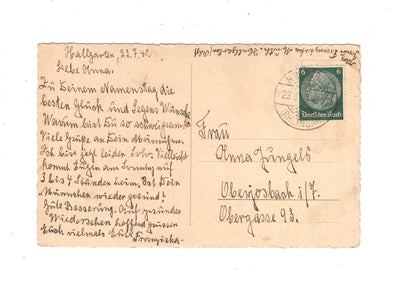 Hallgarten, 23.7.40.
Liebe Anna.
Zu Deinem Namenstag die
besten Glück und Segens Wünsche
Warum bist Du so schweigsam.
Viele Grüße an Dein
Ich bin jetzt leider Vielleicht
kommt Eugen am Sonntag auf
3 bis 4 Stunden heim, Ist Dein
Männchen wieder gesund?
Gute Besserung. Auf gesundes
Wiedersehen hoffend grüssen
Euch vielmals Eure
Franziska.
Franziska Hallgarten
6 6
Deutsches Reich
23
Frau
Anna Jungels
Oberjosbach i/T.
Obergasse 93.